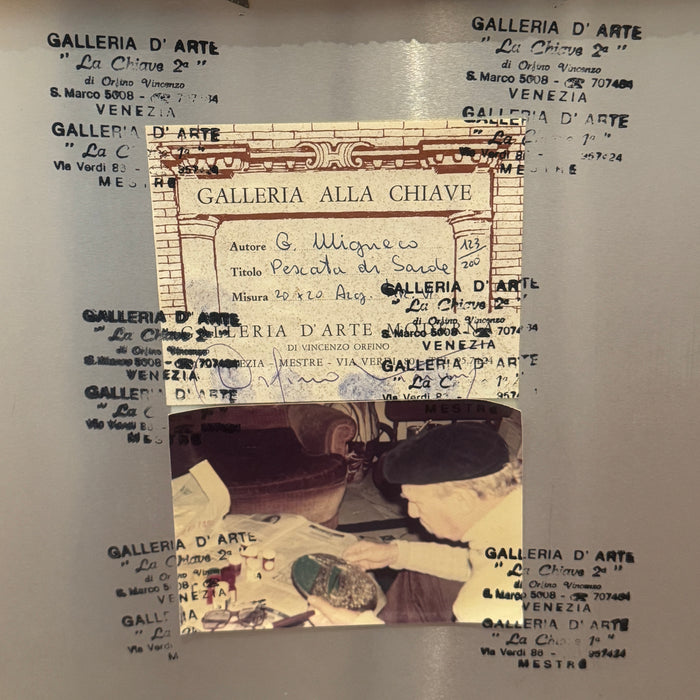 GALLERIA D' ARTE
" La Chiave 2ª "
di Orfino Vincenzo
S. Marco 5008 -
VENEZIA
GALLERIA D' ARTE
" La C 1ª "
Via Verdi 8
MESTRE
GALLERIA D' ARTE
" La Chiave 2ª "
di Orfino Vincenzo
S. Marco 5008 - ☎ 707484
VENEZIA
GALLERIA D' ARTE
" La 1ª "
Via Verdi 8
MESTRE
GALLERIA ALLA CHIAVE
Autore G. Migneco
123/200
Titolo Pescata di Sarde
Misura 20 x 20 Arg.
GALLERIA D'ARTE MODERNA
DI VINCENZO ORFINO
VENEZIA - MESTRE - VIA VERDI
Orfino
GALLERIA D' ARTE
" La Chiave 2ª "
di Orfino Vincenzo
S. Marco 5008 - ☎ 707484
VENEZIA
GALLERIA D' ARTE
" La C
Via Verdi 8
MESTRE
GALLERIA D' ARTE
" La Chiave 2ª "
di Orfino Vincenzo
S. Marco 5008 - ☎ 707
VENEZIA
GALLERIA D' ARTE
" La C 1ª "
MESTRE
GALLERIA D' ARTE
" La Chiave 2ª "
di Orfino Vincenzo
S. Marco 5008 - ☎ 707484
VENEZIA
GALLERIA
" La
Via Verdi 8
GALLERIA D' ARTE
" La Chiave 2ª "
di Orfino Vincenzo
S. Marco 5008 - ☎ 707484
VENEZIA
GALLERIA D' ARTE
" La Chiave 1ª "
Via Verdi 86 - 957424
MESTRE